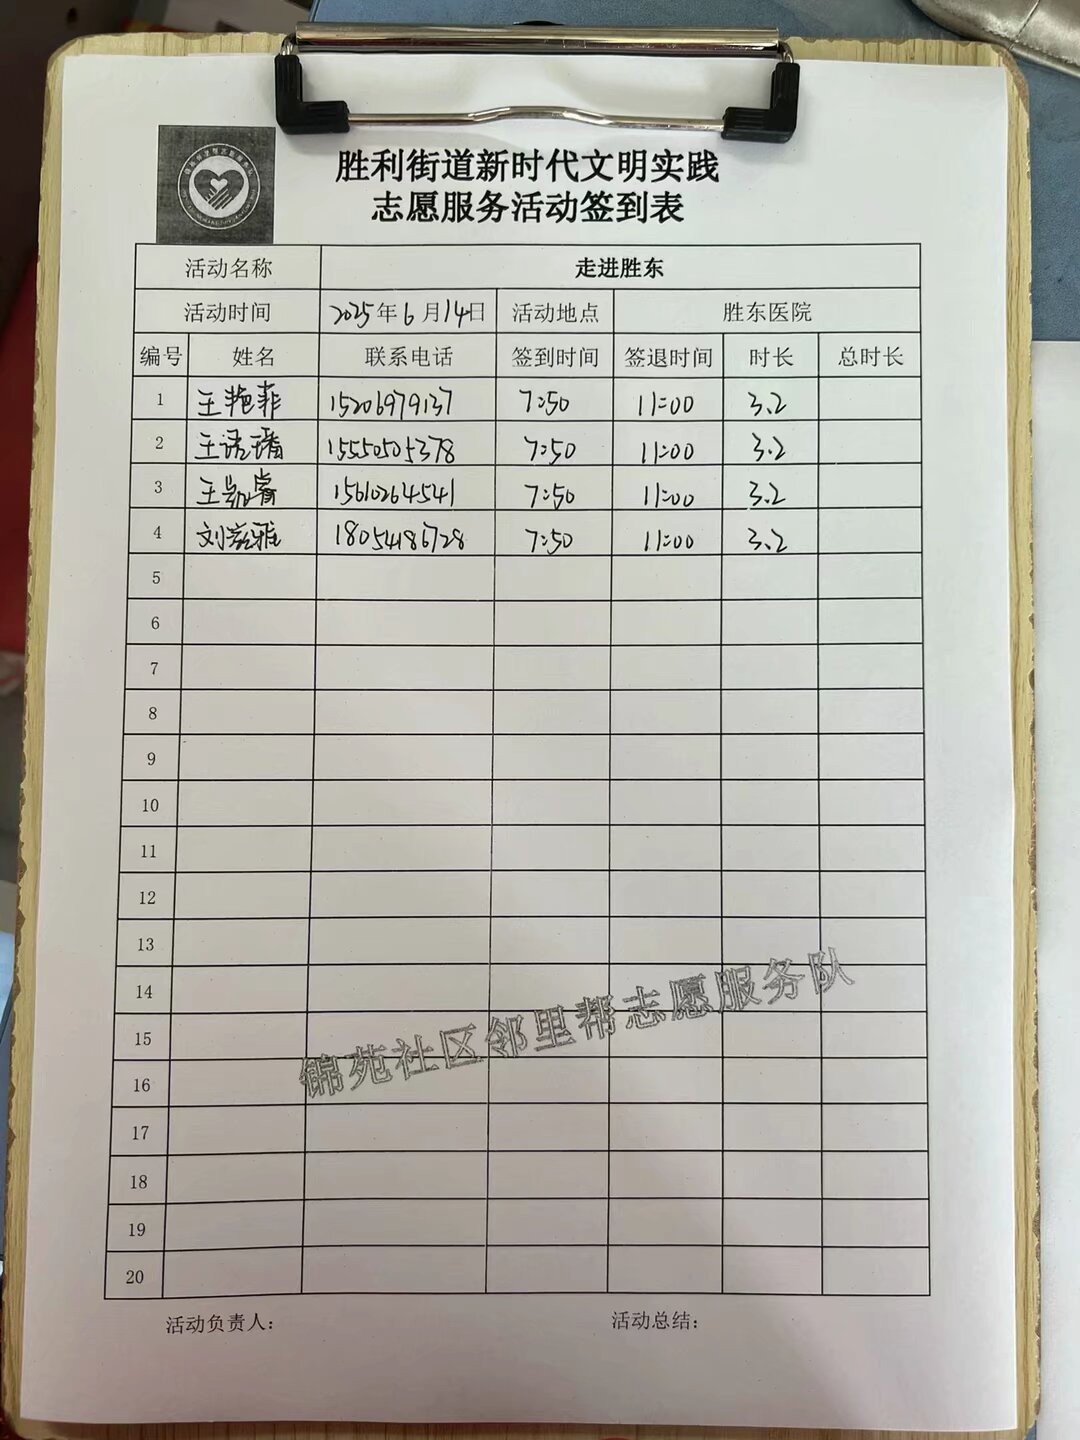 胜利街道新时代文明实践
志愿服务活动签到表
活动名称 走进胜东
活动时间 2025年6月14日 活动地点 胜东医院
编号 姓名 联系电话 签到时间 签退时间 时长 总时长
1 王艳菲 15206979137 7:50 11:00 3.2
2 王诺璠 15550505378 7:50 11:00 3.2
3 王凯睿 15610264541 7:50 11:00 3.2
4 刘雅 18054186728 7:50 11:00 3.2
5
6
7
8
9
10
11
12
13
14
15
16
17
18
19
20
锦苑社区邻里帮志愿服务队
活动负责人： 活动总结：